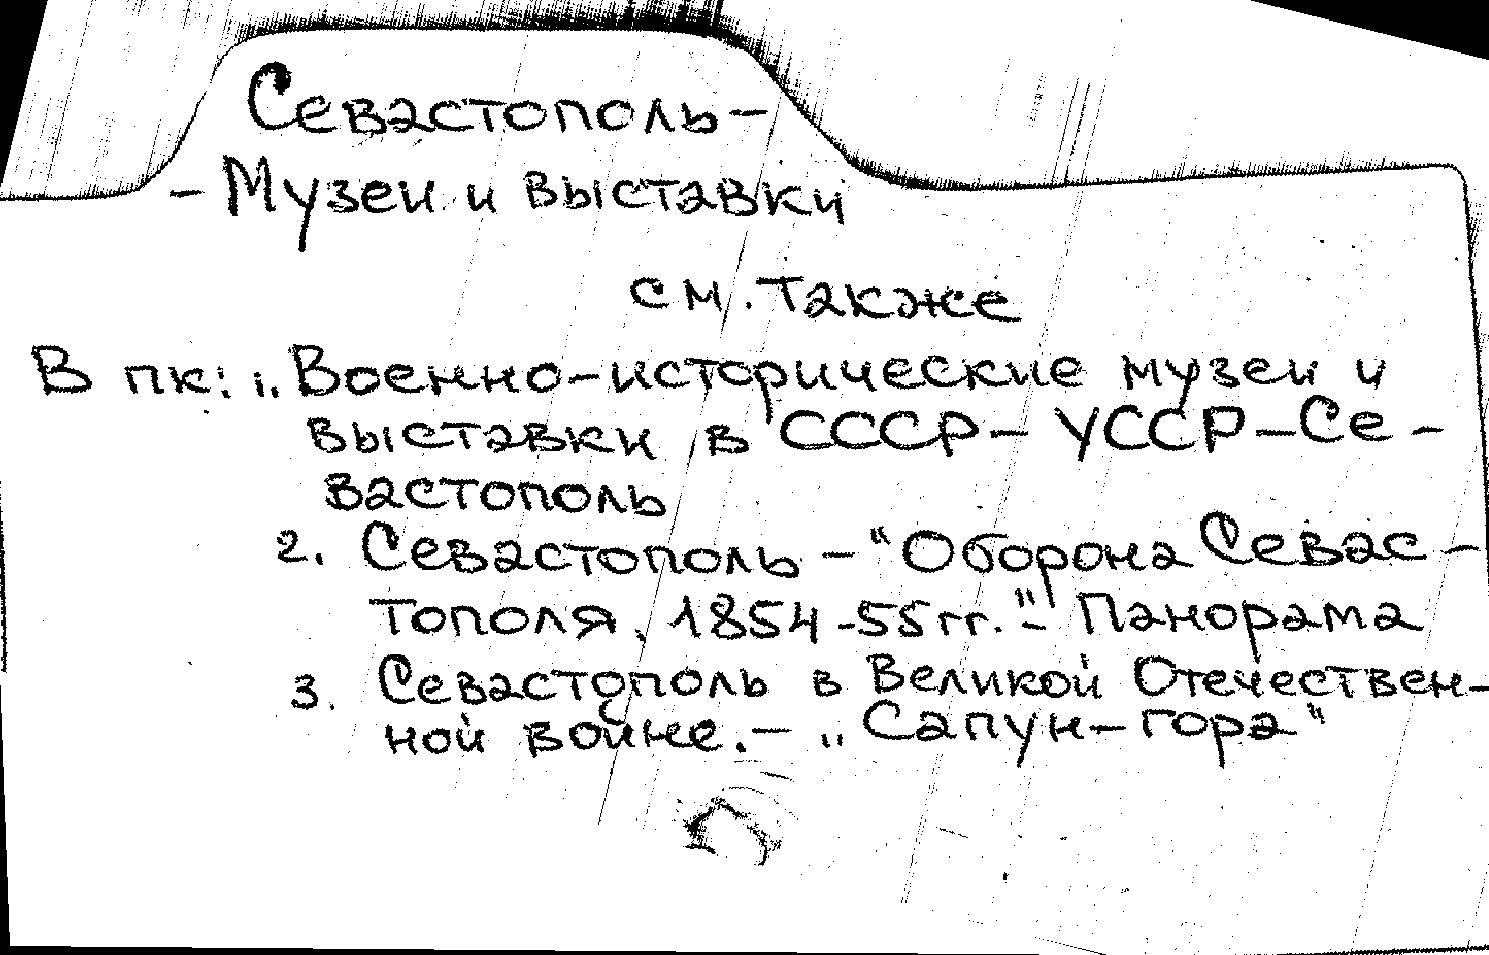 Севастополь –
– Музеи и выставки
см. также
В пк: 1. Военно-исторические музеи и
выставки в СССР – УССР – Се-
вастополь
2. Севастополь – "Оборона Севас-
тополя, 1854-55гг." – Панорама
3. Севастополь в Великой Отечествен-
ной войне. – „Сапун-гора"